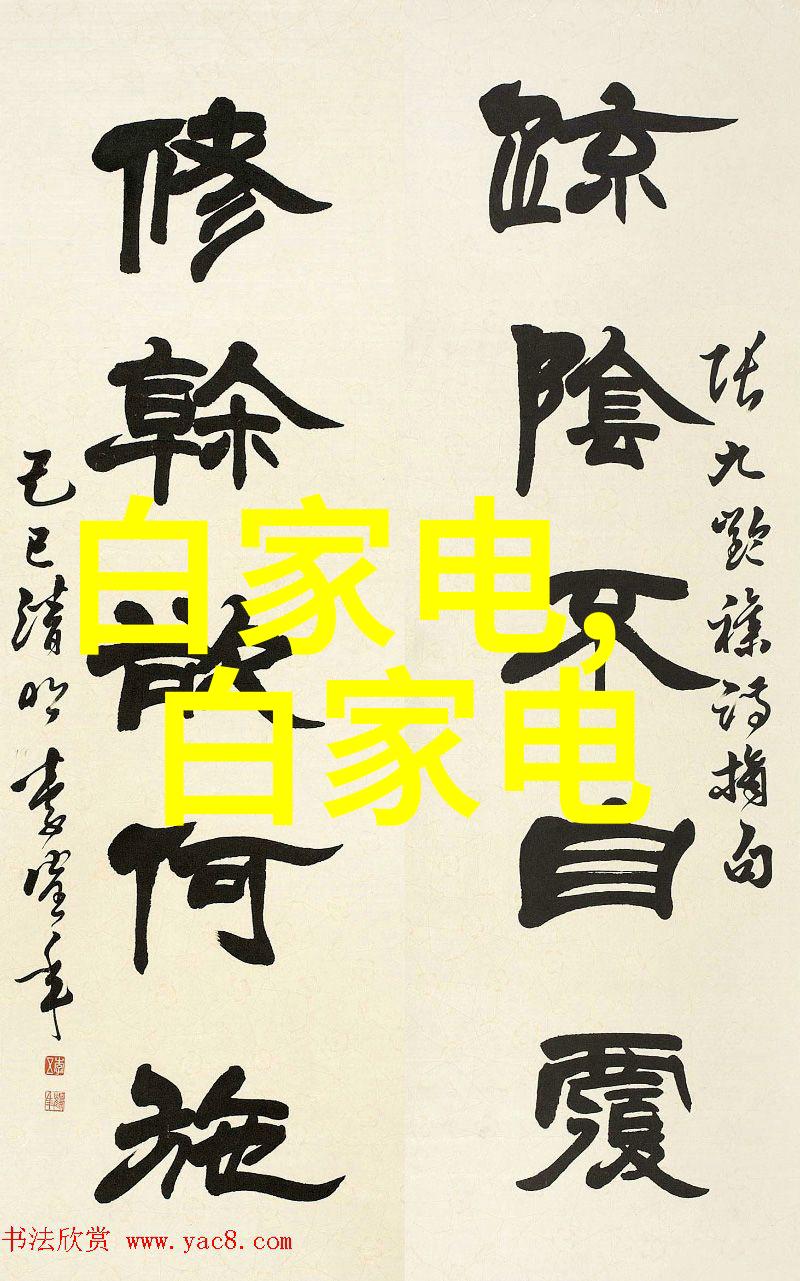 張九齡襍詩摘句
踈陰不自覆
修榦欲何施
己巳清明
白家电,
白家电
书法欣赏 www.yac8.com